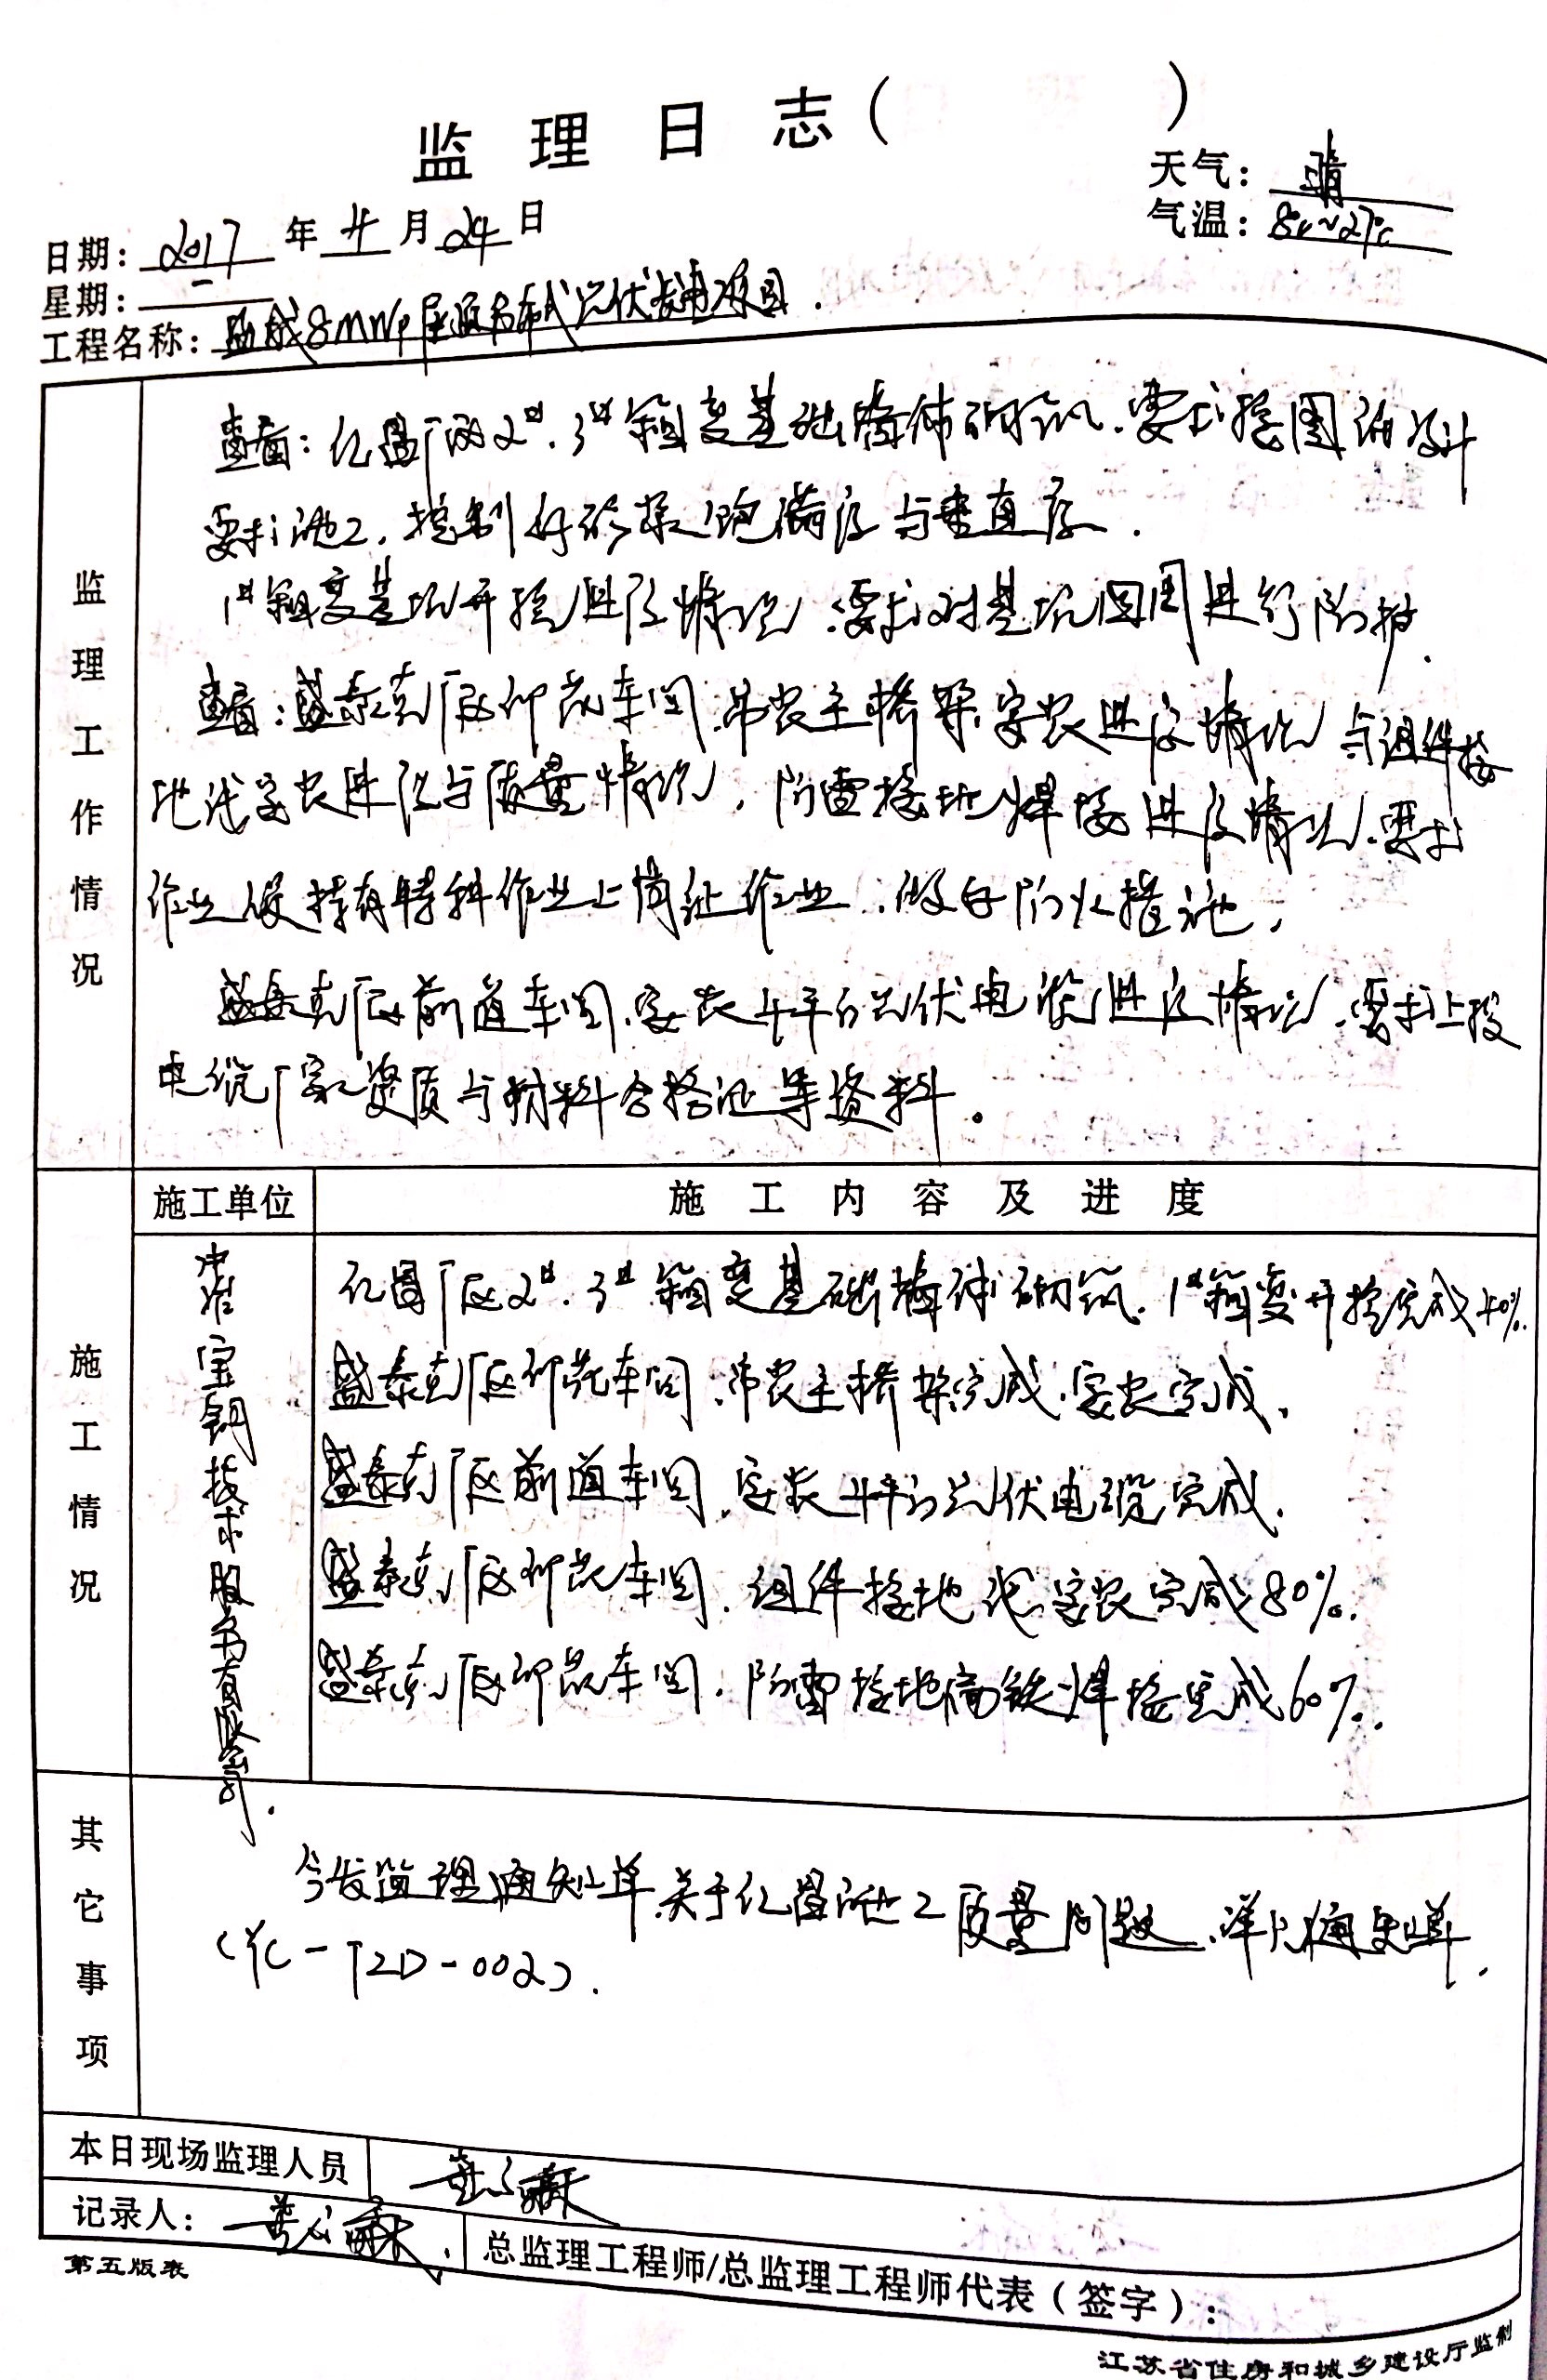 监理日志( )
天气: 晴
气温: 8℃~27℃
日期: 2017 年 4 月 24 日
星期: 一
工程名称: 盐城8MWP屋顶分布式光伏发电项目.
监理工作情况
查看: 亿昌厂区2#、3#箱变基础墙体砌筑.要求按图纸设计
要求施工,控制好砂浆饱满度与垂直度.
1#箱变基坑开挖进度情况.要求对基坑四周进行防护.
查看: 盛泰克厂区印花车间.吊装主桥架.安装进度情况与组件接
地线安装进度与质量情况,防雷接地焊接进度情况.要求
作业人员持有特种作业上岗证作业.做好防火措施,
盛泰克厂区前道车间.安装4平方光伏电缆进度情况.要求上报
电缆厂家资质与材料合格证等资料。
施工情况
施工单位
施工内容及进度
中准宝钢技术股份有限公司.
亿昌厂区2#、3#箱变基础墙体砌筑.1#箱变开挖完成40%.
盛泰克厂区印花车间.吊装主桥架完成.安装完成.
盛泰克厂区前道车间.安装4平方光伏电缆完成.
盛泰克厂区印花车间.组件接地线安装完成80%.
盛泰克厂区印花车间.防雷接地扁铁焊接完成60%.
其它事项
今发监理通知单.关于亿昌施工质量问题.详见通知单.
(YC-TZD-002).
本日现场监理人员
记录人:
总监理工程师/总监理工程师代表(签字):
第五版表
江苏省住房和城乡建设厅监制